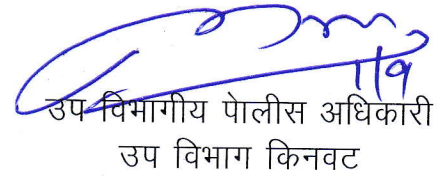 1/9
उप विभागीय पोलीस अधिकारी
उप विभाग किनवट